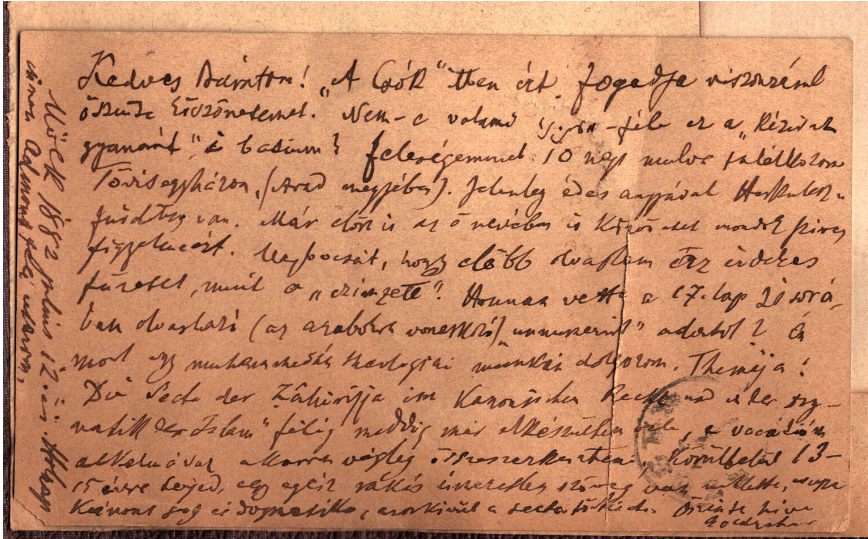 Kedves Barátom! „A Csók" itten ért. fogadja viszonzásul
őszinte köszönetemet. Nem-e valami -féle ez a „kézirat
gyanánt" i basium? Feleségemmel 10 nap mulva találkozom
Törökegyházon, (Arad megyében). Jelenleg édes anyjával Herkules-
fürdőben van. Már előre is az ő nevében is köszönetet mondok szives
figyelmeért. Megbocsát, hogy előbb olvastam érdekes
füzetét, mint a „czimzett". Honnan vette a 17. lap 20 sorá-
ban olvasható (az arabokra vonatkozó) adatot? Én
most egy muhammedán theologiai munkán dolgozom. Themája:
Die Secte der Zâhirijja im Kanonischen Recht und in der Dog-
matik des Islam" félig meddig már elkészültem vele, a vacatiók
alkalmával akarom végleg összeszerkeszteni. Körülbelül 13-
15 ívre terjed, egy egész rakás ismeretlen szöveg van mellette,
és dogmatika, azonkívül a secta Őszinte híve
Goldziher
1882 julius 12.